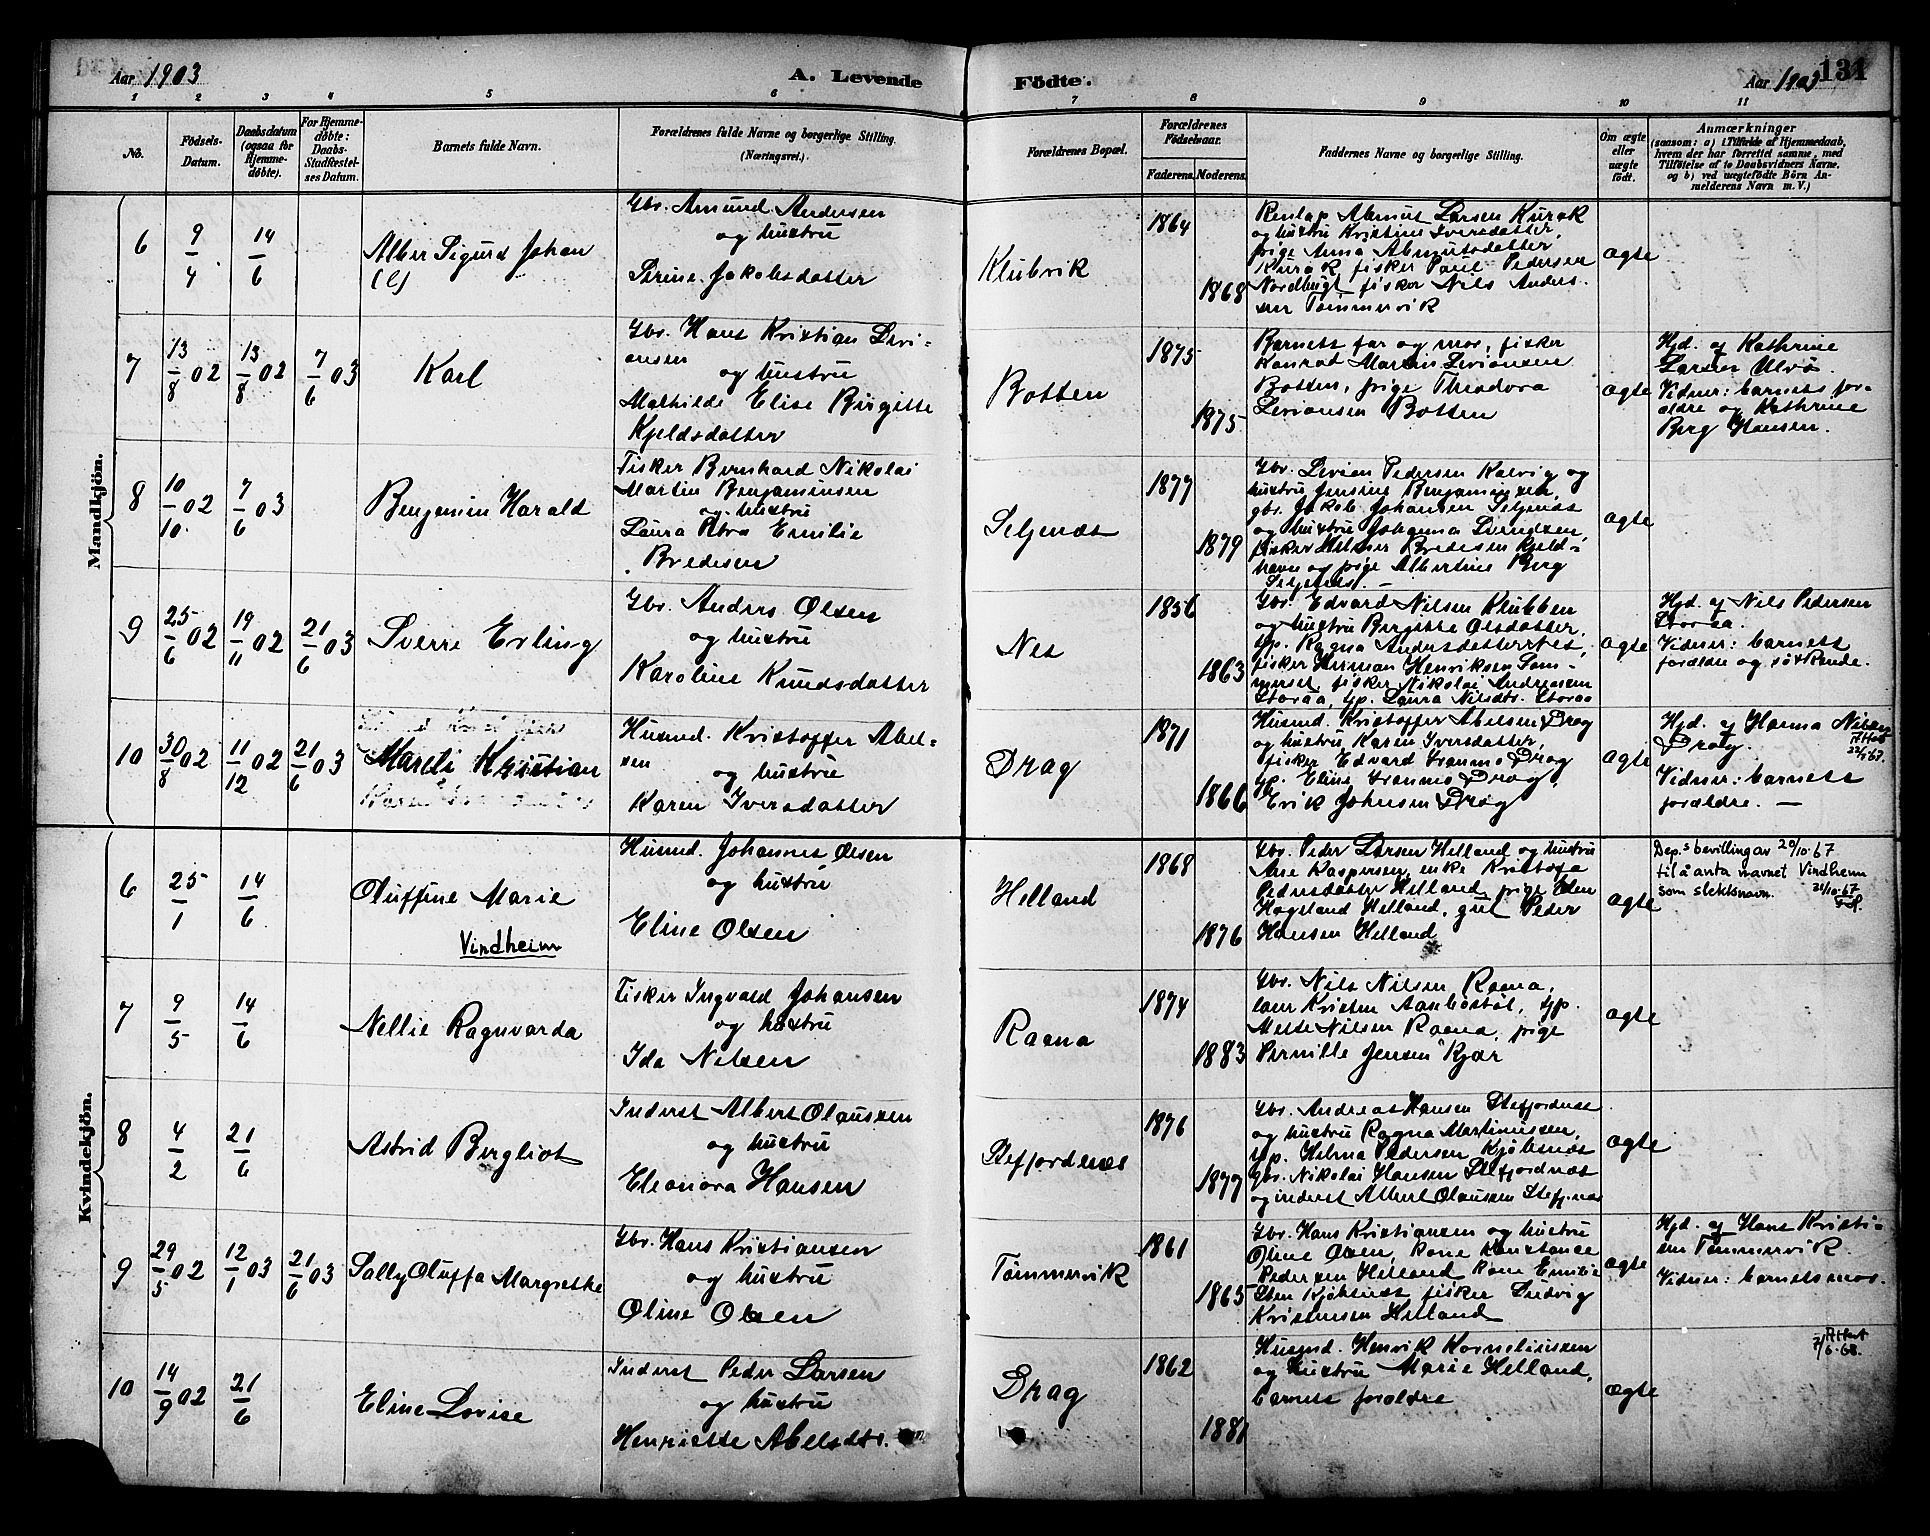 Aar 1903
A. Levende
Fødte.
Aar 1903
131
1 2 3 4 5 6 7 8 9 10 11
No.
Fødsels-
Datum.
Daabsdatum
(ogsaa for
Hjemme-
døbte).
For Hjemme-
døbte:
Daabs-
Stadfæstel-
ses Datum.
Barnets fulde Navn.
Forældrenes fulde Navne og borgerlige Stilling.
(Næringsvei.)
Forældrenes Bopæl.
Forældrenes
Fødselsaar.
Faderens. Moderens.
Faddernes Navne og borgerlige Stilling.
Om ægte
eller
uægte
født.
Anmærkninger
(saasom: a) i Tilfælde af Hjemmedaab,
hvem der har forrettet samme, med
Tilføielse af to Daabsvidners Navne.
og b) ved uægtefødte Börn An-
melderens Navn m. V.)
Mandkjön.
6
9/4
14/6
Alber Sigurd Johan
(l)
Gbr. Amund Andersen
og hustru
Serine Jakobsdatter
Klubvik
1864
1868
Renlap Abmut Larsen Kurak
og hustru Kristine Iversdatter,
pige Anna Abmutsdatter
Kurak, fisker Paul Pedersen
Nordbugt fisker Nils Anders
sen Tømmervik
ægte
7
13/8 02
13/8 02
7/6 03
Karl
Gbr. Hans Kristian Levi-
onsen
og hustru
Mathilde Elise Birgitte
Kjeldsdatter
Botten
1875
1875
Barnets far og mor, fisker
Konrad Martin Levionsen
Botten, pige Theodora
Levionsen Botten
ægte
Hjd. af Kathrine
Larsen Ulvø.
Vidner: barnets for-
ældre og Kathrine
Berg Hansen.
8
10/10 02
7/6 03
Benjamin Harald
Fisker Bernhard Nikolai
Martin Benjaminsen
og hustru
Laura Petra Emilie
Bredesen
Seljenæs
1877
1879
Gbr. Levion Pedersen Kalvig og
hustru Jensine Benjaminsen,
gbr. Jakob Johansen Seljenæs
og hustru Johanna
fisker Bredesen Kjeld-
havn og pige Albertine Berg
Seljenæs. —
ægte
9
25/6 02
19/11 02
21/6 03
Sverre Erling
Gbr. Anders Olsen
og hustru
Karoline Knudsdatter
Nes
1856
1863
Gbr. Edvard Nilsen Klubben
og hustru Birgitte Olsdatter,
tjp. Ragna Andersdatter Nes,
fisker Herman Henriksen Som-
merset, fisker Nikolai Andreasen
Storaa, tjp. Laura Nilsdtr. Storaa
ægte
Hjd. af Nils Pedersen
Storaa.
Vidner: barnets
forældre og søskende.
10
30/8 02
11/12 02
21/6 03
Mareli Kristian
Husmd. Kristoffer Abel-
sen
og hustru
Karen Iversdatter
Drag
1871
1866
Husmd. Kristoffer Abelsen Drag
og hustru Karen Iversdatter,
fisker Edvard Granmo Drag
tjp. Eline Granmo Drag,
Erik Johnsen Drag
ægte
Hjd. af Hanna Nilsen
Drag.
Attest
22/5 67.
Vidner: barnets
forældre. —
Kvindekjön.
6
25/1
14/6
Oluffine Marie
Vindheim
Husmd. Johannes Olsen
og hustru
Eline Olsen
Helland
1868
1876
Gbr. Peder Larsen Helland og hustru
Ane Kaspersen, enke Kristofa
Pedersdatter Helland, pige Ellen
Hogstand Helland, gut Peder
Hansen Helland
ægte
Dep.s bevilling av 20/10-67
til å anta navnet Vindheim
som slektsnavn. 21/10-67
7
9/5
14/6
Nellie Ragnvarda
Fisker Ingvald Johansen
og hustru
Ida Nilsen
Raana
1874
1883
Gbr. Nils Nilsen Raana,
lær Kristen Aanbøstøl, tjp.
Mette Nilsen Raana, pige
Pernille Jensen Kjær
ægte
8
4/2
21/6
Astrid Bergliot
Inderst Albert Olaussen
og hustru
Eleonora Hansen
Stefjordnæs
1876
1877
Gbr. Andreas Hansen Stefjordnæs
og hustru Ragna Martinussen,
tjp. Helma Pedersen Kjøbsnæs
gbr. Nikolai Hansen Stefjordnæs
og inderst Albert Olaussen Stefj.næs
ægte
9
29/5 02
12/1 03
21/6 03
Sally Oluffa Margrethe
Gbr. Hans Kristiansen
og hustru
Oline Olsen
Tømmervik
1861
1865
Gbr. Hans Kristiansen og hustru
Oline Olsen, kone Konstance
Pedersen Helland kone Emilie
Sten Kjøbsnæs fisker Ludvig
Kristensen Helland
ægte
Hjd. af Hans Kristi-
sen Tømmervik.
Vidner: barnets mor.
10
14/9 02
21/6
Eline Lovise
Inderst Peder Larsen
og hustru
Henriette Abelsdtr.
Drag
1862
1881
Husmd. Henrik Korneliussen
og hustru Marie Helland,
barnets forældre
ægte
Attest
7/6-68.